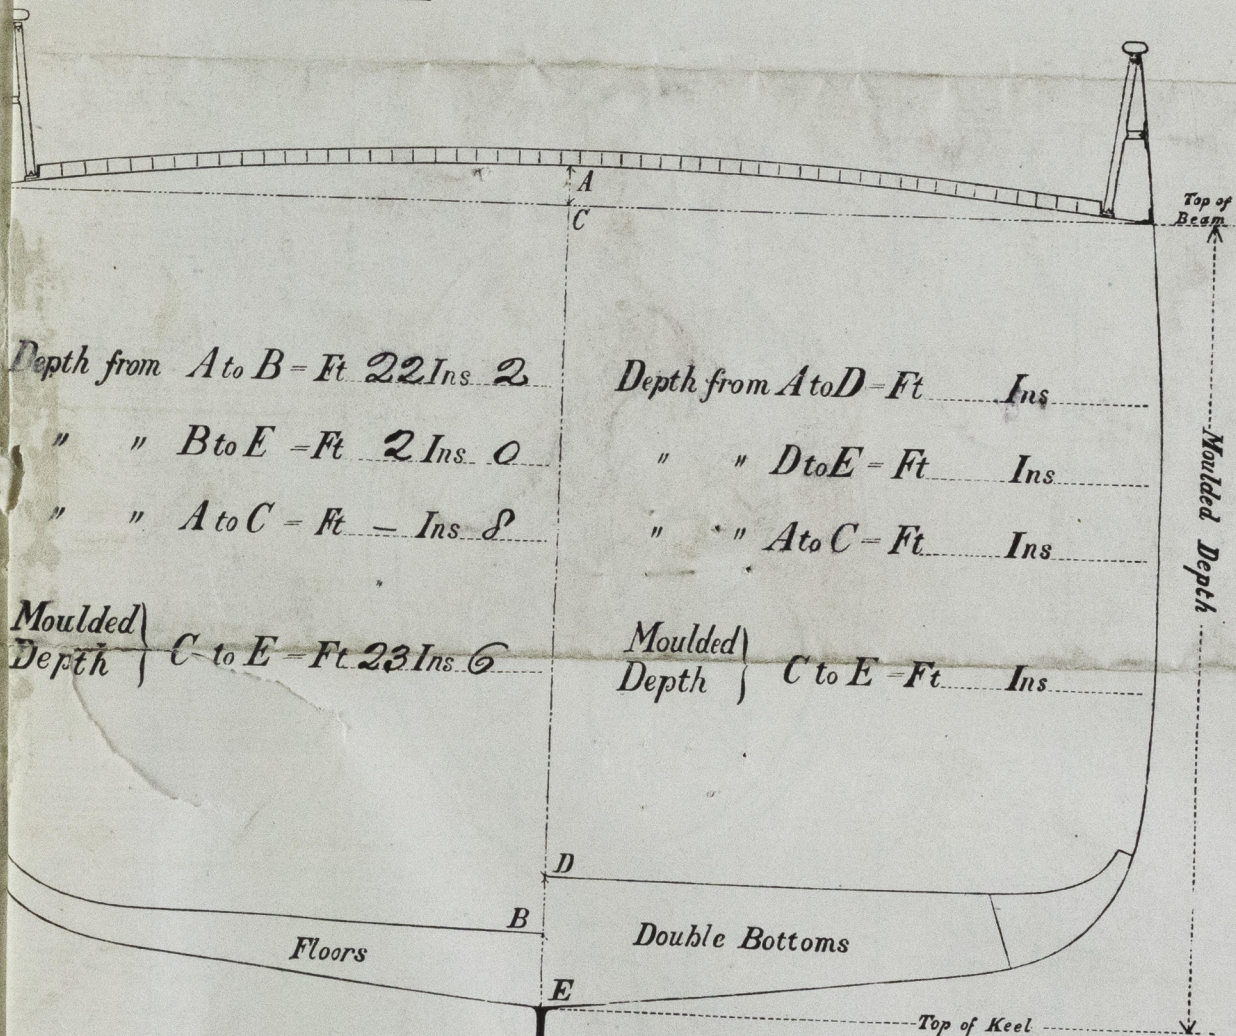 A
C
Top of
Beam
Depth from A to B = Ft 22 Ins 2
" " B to E = Ft 2 Ins 0
" " A to C = Ft – Ins 8
Moulded
Depth } C to E = Ft 23 Ins 6
Depth from A to D = Ft Ins
" " D to E = Ft Ins
" " A to C = Ft Ins
Moulded
Depth } C to E = Ft Ins
Moulded Depth
D
B
Floors
Double Bottoms
E
Top of Keel